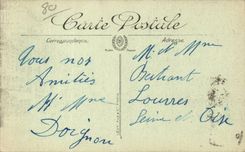 80
Carte Postale
Correspondance
Adresse
Vous nos
Amitiés
Mr Mme
Doignon
M. et Mme
Batiant
Louvres
Seine et Oise